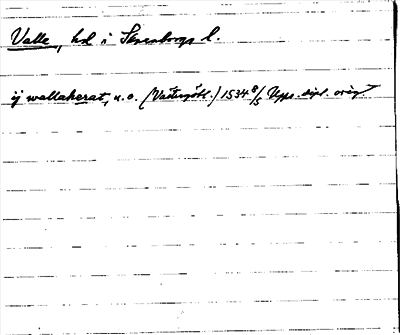 Valle, hd i Skaraborgs l.
ij wallaherat, u.o. (Västergötl.) 1534 8/5 Upps. dipl. orig